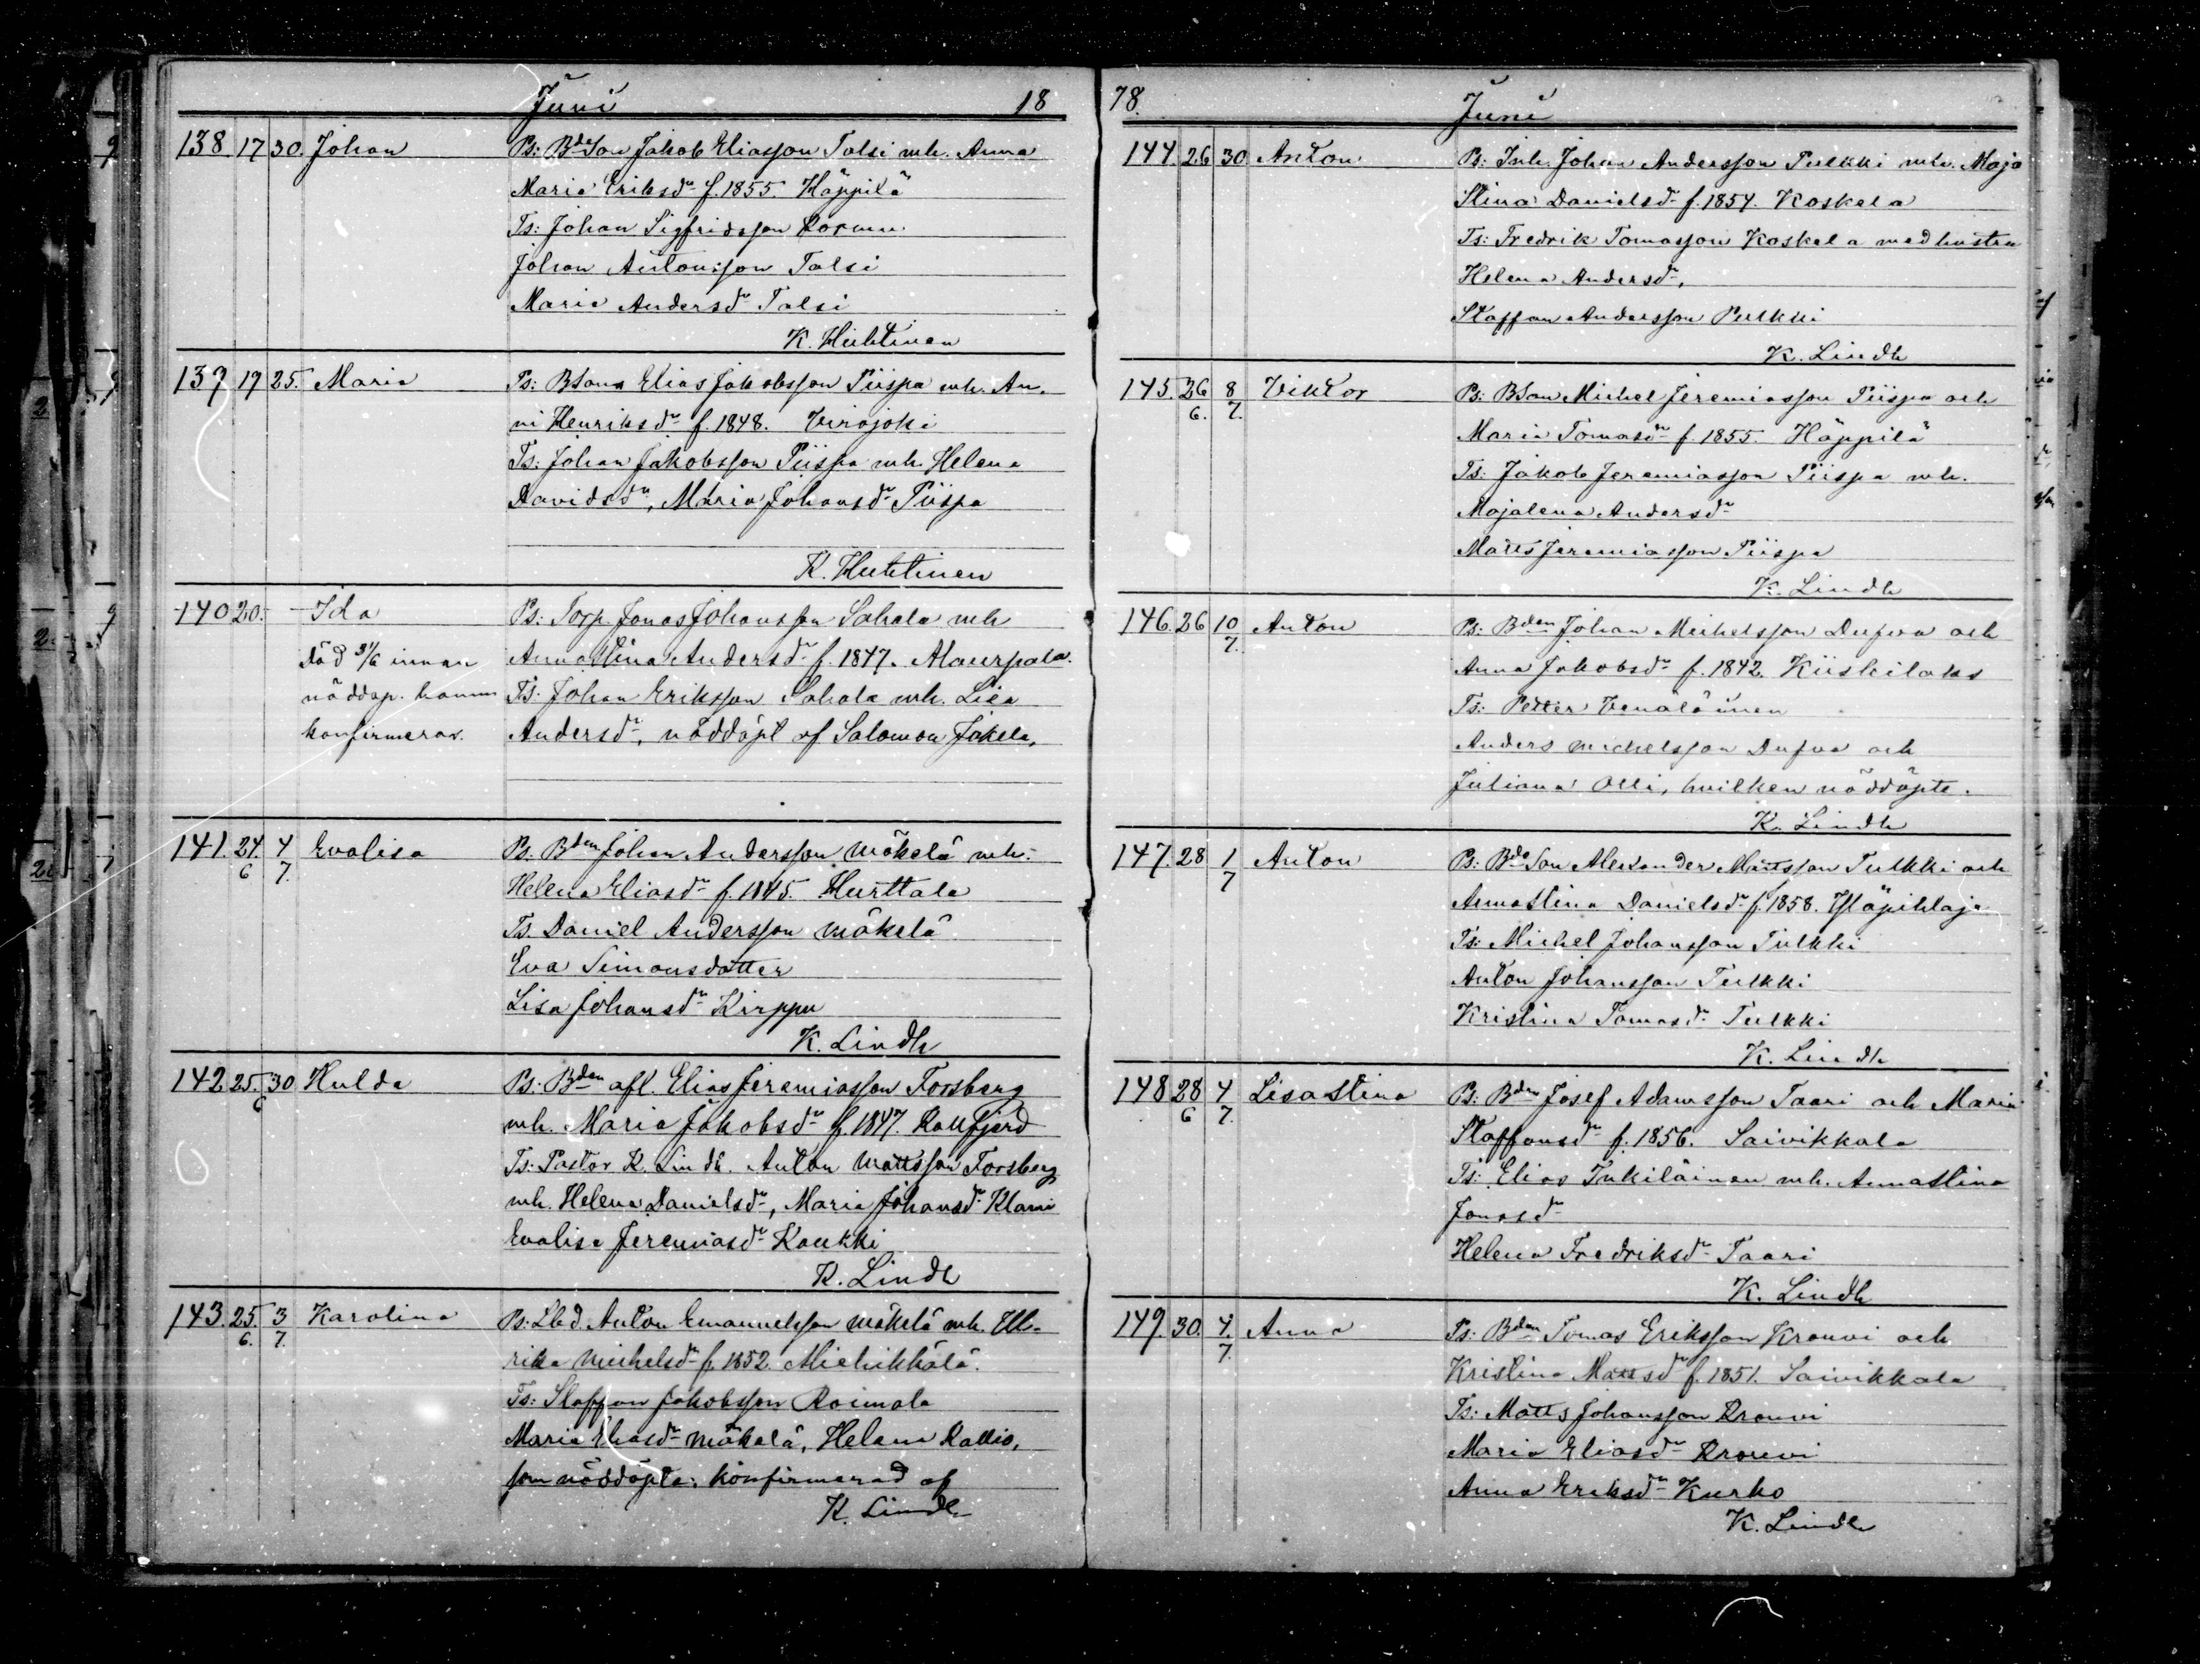 Juni 18
138. 17 30. Johan Ps: Bde Son Jakob Eliasson Talsi mh. Anna
Maria Eriksdr f. 1855. Häppilä
Ts: Johan Sigfridsson
Johan Antonsson Talsi
Maria Andersdr Talsi
K. Huhtinen
139 19 25. Maria Ps: BSon Elias Jakobsson Piispa mh. An-
ni Henriksdr f. 1848. Virojoki
Ts: Johan Jakobsson Piispa mh. Helena
Davidsdr, Maria Johansdr Piispa
K. Huhtinen
140 20. Ida Ps: Torp. Jonas Johansson Sahala mh
död 31/6 innan AnnaStina Andersdr f. 1847. Maurpala.
nöddop. hann Ts: Johan Eriksson Sahala mh. Lisa
konfirmeras. Andersdr, nöddöpt af Salomon Jäkelä,
141. 24. 4 Evalisa Ps. Bden Johan Andersson Mäkelä mh.
6 7. Helena Eliasdr f. 1845. Hurttala
Ts. Daniel Andersson Mäkelä
Eva Simonsdotter
Lisa Johansdr Kirppu
K. Lindh
142 25. 30 Hulda Ps: Bden afl. Elias Jeremiasson Forsberg
6 mh. Maria Jakobsdr f. 1847. Ravfjerd
Ts: Pastor K. Lindh. Anton Mattsson Forsberg
mh. Helena Danielsdr, Maria Johansdr Klami
Evalisa Jeremiasdr Koukki
K. Lindh
143. 25. 3 Karolina Ps: Lbd. Anton Emanuelsson Mäkelä mh. Ul-
6. 7. rika Michelsdr f. 1852. Miehikkälä.
Ts: Staffan Jakobsson Roimola
Maria Eliasdr Mäkelä, Helena Kallio,
som nöddöpte; konfirmerad af
K. Lindh
78. Juni
144. 26 30 Anton Ps: Inh. Johan Andersson Pulkki mh. Maja
Stina Danielsdr f. 1854. Koskela
Ts: Fredrik Tomasson Koskela med hustru
Helena Andersdr,
Staffan Andersson Pulkki
K. Lindh
145. 26 8 Viktor Ps: BSon Michel Jeremiasson Piispa och
6. 7. Maria Tomasdr f. 1855. Häppilä
Ts: Jakob Jeremiasson Piispa mh.
Majalena Andersdr
Matts Jeremiasson Piispa
K. Lindh
146. 26 10 Anton Ps: Bden Johan Michelsson Dufva och
7. Anna Jakobsdr f. 1842. Kiiskilaks
Ts: Petter Venäläinen
Anders Michelsson Dufva och
Juliana Olli, hvilken nöddöpte.
K. Lindh
147. 28 1 Anton Ps: Bde Son Alexander Mattsson Tulkki och
7 Annastina Danielsdr f. 1858. Yläpihlaja
Ts: Michel Johansson Tulkki
Anton Johansson Tulkki
Kristina Tomasdr Tulkki
K. Lindh
148 28 4 Lisastina Ps: Bden Josef Adamsson Taari och Maria
6 7. Staffansdr f. 1856. Saivikkala
Ts: Elias Inkiläinen mh. Annastina
Jonasdr
Helena Fredriksdr Taari
K. Lindh
149. 30. 4. Anna Ps: Bden Tomas Eriksson Krouvi och
7. Kristina Mattsdr f. 1851. Saivikkala
Ts: Matts Johansson Krouvi
Maria Eliasdr Krouvi
Anna Eriksdr Kurko
K. Lindh